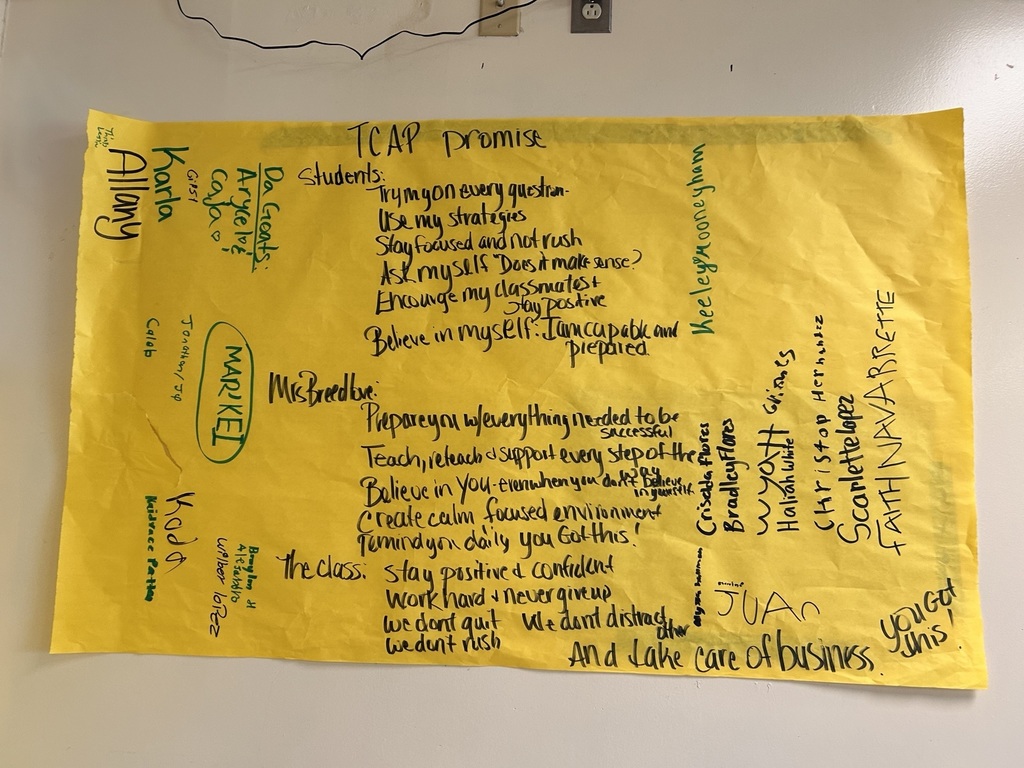 TCAP promise
Students:
Try my on every question.
Use my strategies
Stay focused and not rush
Ask myself "Does it make sense?
Encourage my classmates +
stay positive
Believe in myself: I am capable and
prepared
Mrs Breedlove:
Prepare you w/everything needed to be
successful
Teach, reteach & support every step of the
way
Believe in you - even when you don't believe
in yourself
Create calm focused environment
remind you daily you Got this!
The class:
Stay positive & confident
Work hard & never give up
we dont quit We dont distract
other
we dont rush
And take care of business.
You Got
this!
Allany
Karla
Gipsy
Da Greats:
Caja
Jonathan/JJ
Caleb
MARIKEI
Koda
Wilber lopez
Keeley Mooneyham
Criselda Flores
Bradley Flores
Wyatt Grimes
Haliah White
Christop Hernandez
Scarlette lopez
FAITH NAVABRETTE
JUAn